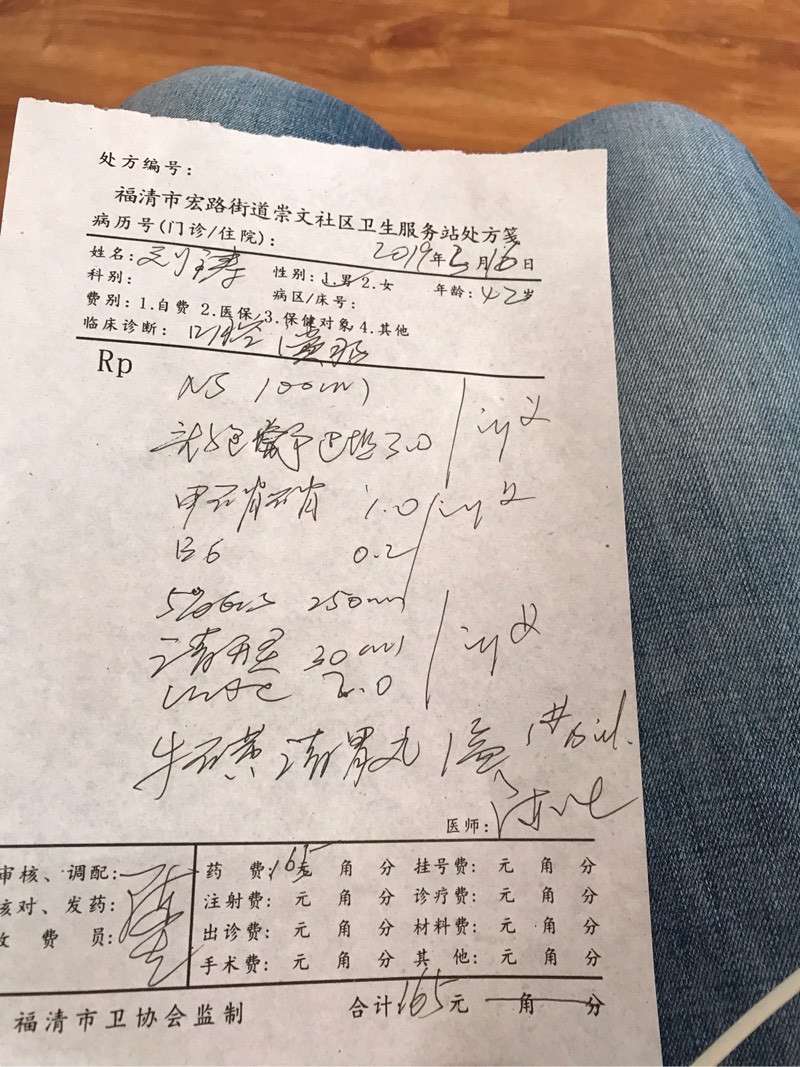 处方编号:
福清市宏路街道崇文社区卫生服务站处方笺
病历号(门诊/住院): 2019年5月16日
姓名: 性别:1.男2.女 年龄:42岁
科别: 病区/床号:
费别:1.自费 2.医保 3.保健对象 4.其他
临床诊断:口腔溃疡
Rp
NS 100ml
3.0 iv
甲硝 1.0 iv
B6 0.2
5% 250ml
清开灵 30ml iv
2.0
牛黄清胃丸
医师:
审核、调配: 药 费:165元 角 分 挂号费: 元 角 分
核对、发药: 注射费: 元 角 分 诊疗费: 元 角 分
收 费 员: 出诊费: 元 角 分 材料费: 元 角 分
手术费: 元 角 分 其 他: 元 角 分
福清市卫协会监制 合计165元 角 分